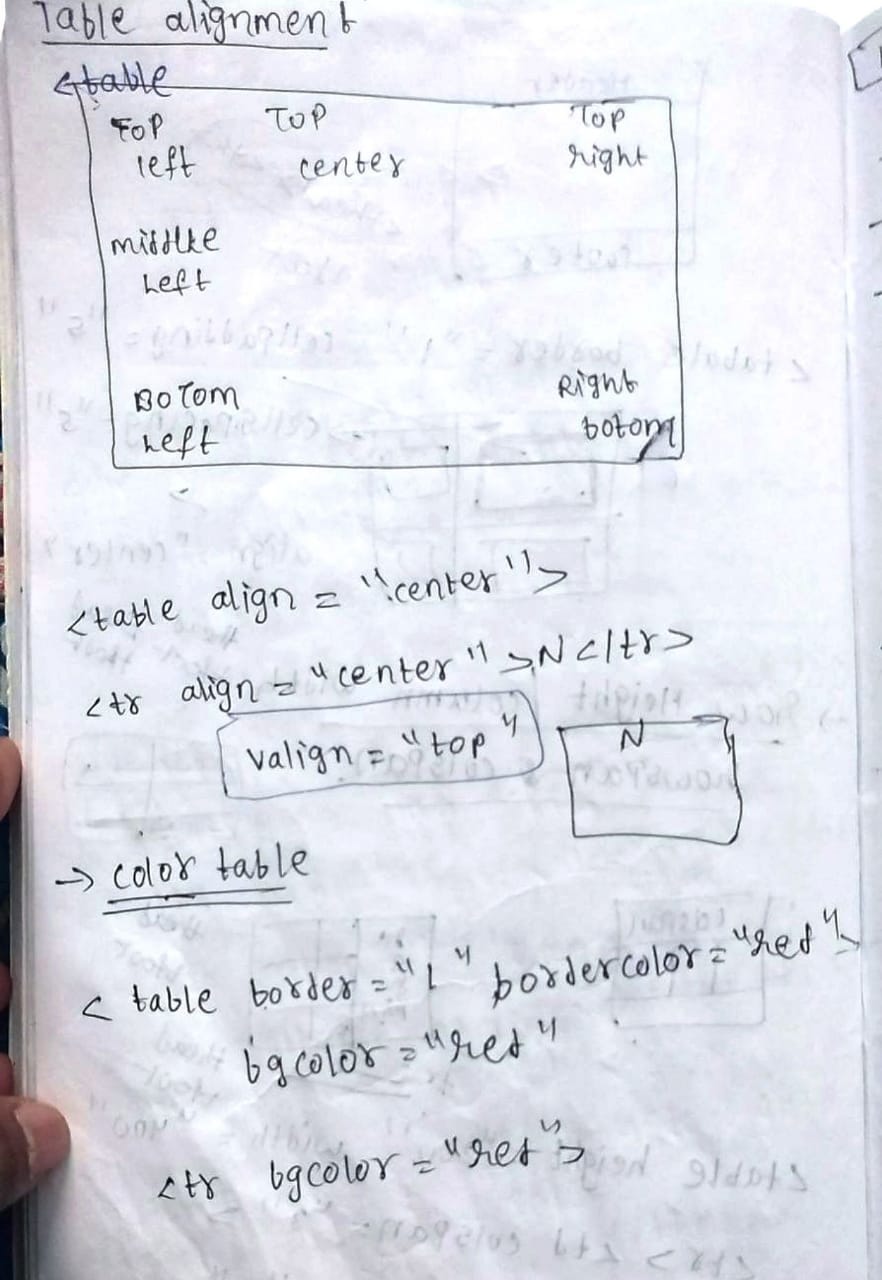 Table alignment
<table
Top Top Top
left center right
middle
Left
Botom Right
Left botom
<table align = "center">
<tr align = "center">N</tr>
valign = "top"
N
→ color table
< table border = "1" bordercolor = "red">
bgcolor = "red"
<tr bgcolor = "red">